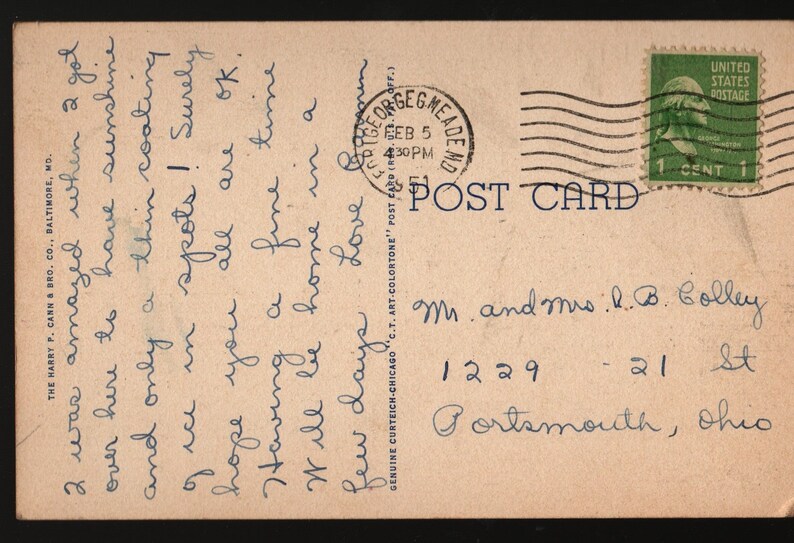 I was amazed when I got
over here to have sunshine
and only a thin coating
of ice in spots! Surely
hope you all are OK.
Having a fine time
Will be home in a
few days - Love
THE HARRY P. CANN & BRO. CO., BALTIMORE, MD.
GENUINE CURTEICH-CHICAGO "C.T. ART-COLORTONE" POST CARD (REG. U.S. PAT. OFF.)
FORT GEORGE G. MEADE, MD.
FEB 5
4 30 PM
1951
UNITED
STATES
POSTAGE
GEORGE
WASHINGTON
1 CENT 1
POST CARD
Mr. and Mrs. R. B. Colley
1229 - 21 St
Portsmouth, Ohio